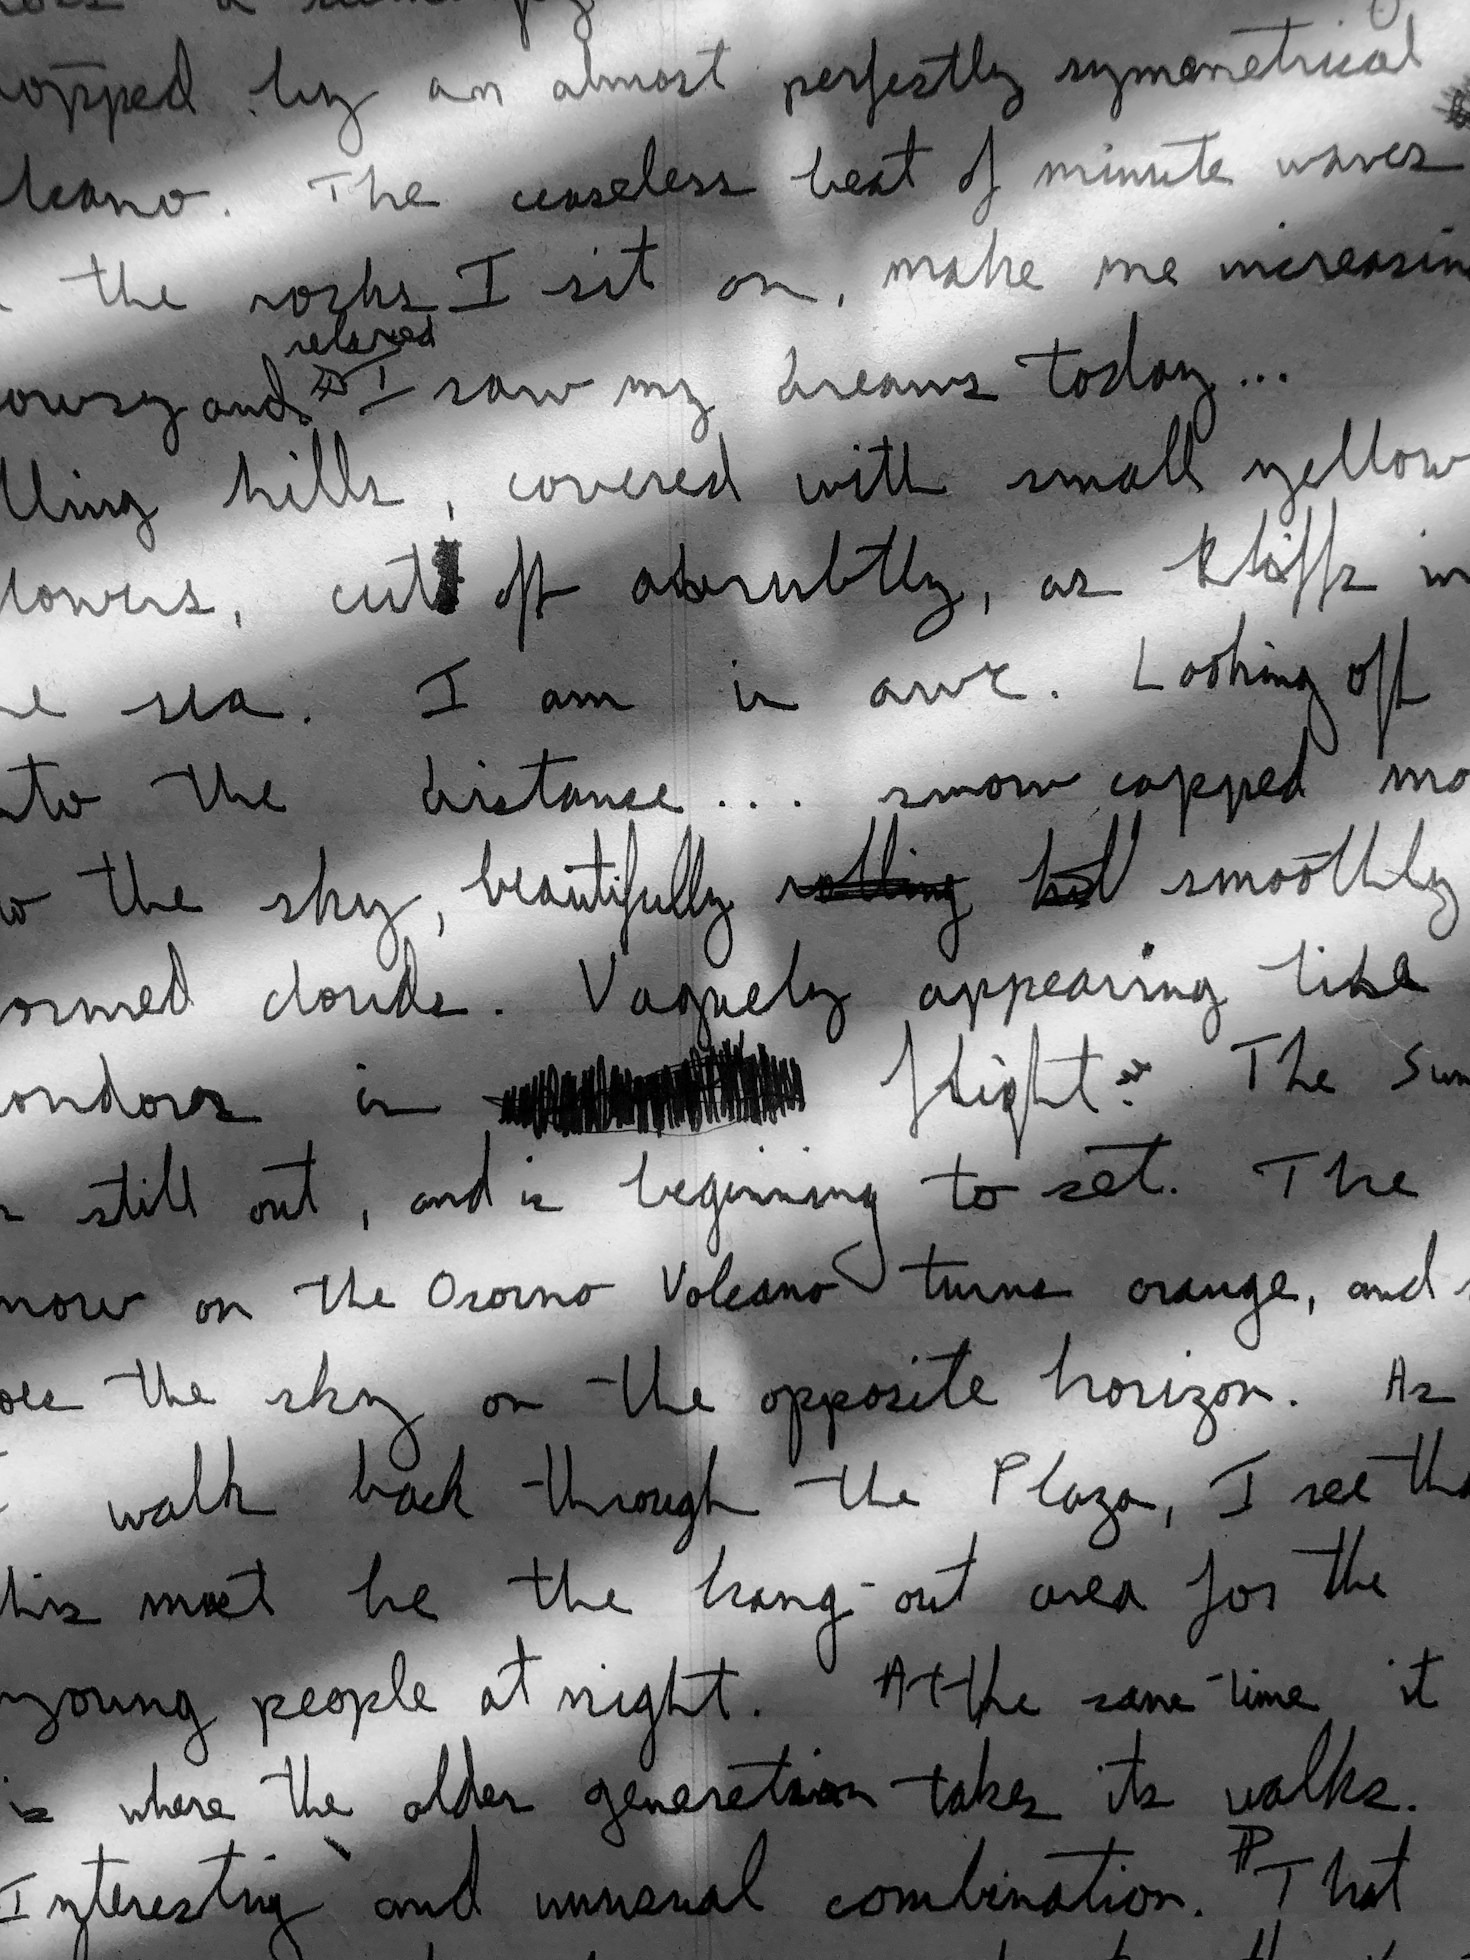 opped by an almost perfectly symmetrical
lcano. The ceaseless beat of minute waves
the rocks I sit on, make me increasin
relaxed
owsy and I saw my dreams today...
lling hills, covered with small yellow
lowers, cut off abrubtly, as kliffs in
e sea. I am in awe. Looking off
nto the distance... snow capped mo
o the sky, beautifully rolling smoothly
ormed clouds. Vaguely appearing like
ondors in flight. The Sun
still out, and is beginning to set. The
now on the Osorno Volcano turns orange, and s
oes the sky on the opposite horizon. As
I walk back through the Plaza, I see tha
this must be the hang-out area for the
young people at night. At the same time it
is where the older generation takes its walks.
Interesting and unusual combination. That